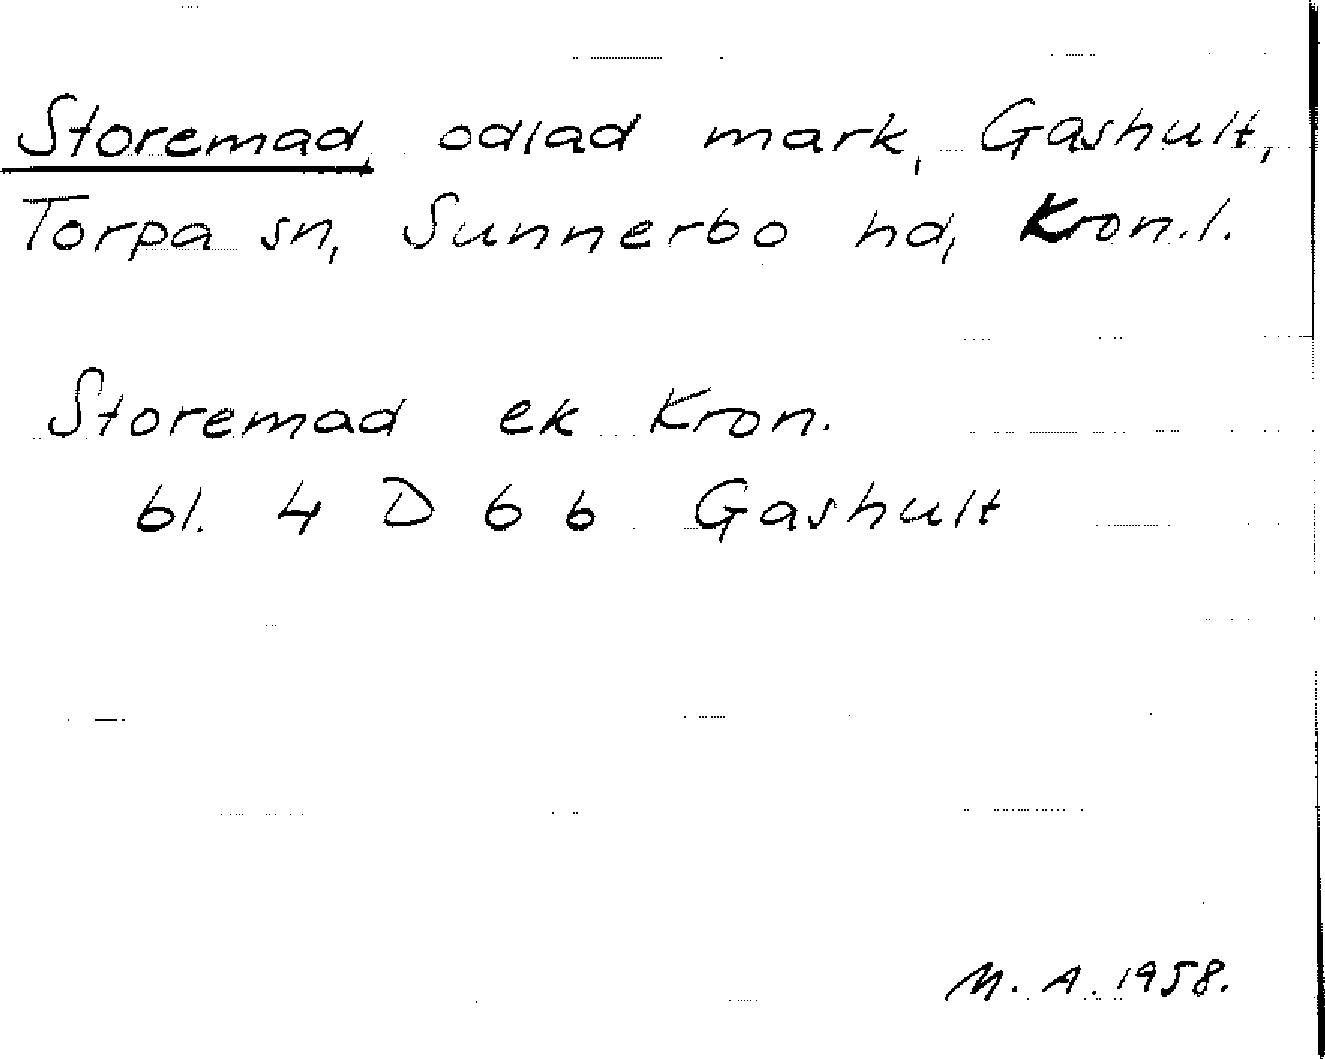 Storemad, odlad mark, Gashult,
Torpa sn, Sunnerbo hd, Kron.l.
Storemad ek Kron.
bl. 4 D 6 b Gashult
M. A. 1958.